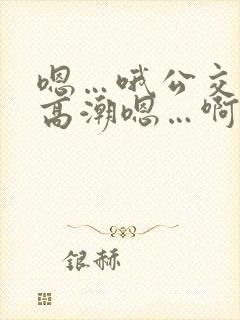 嗯…哦公交
高潮嗯…啊
银赫